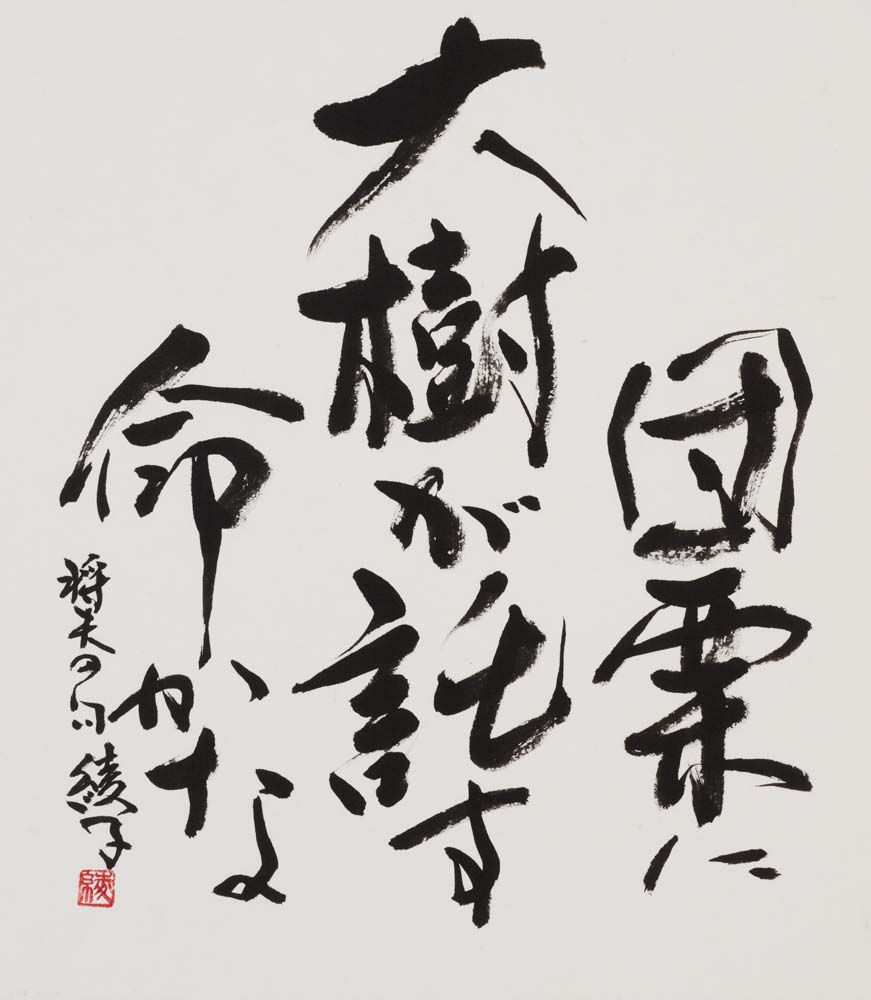 団栗に
大樹が託す
命かな
将夫の句 綾子
綾